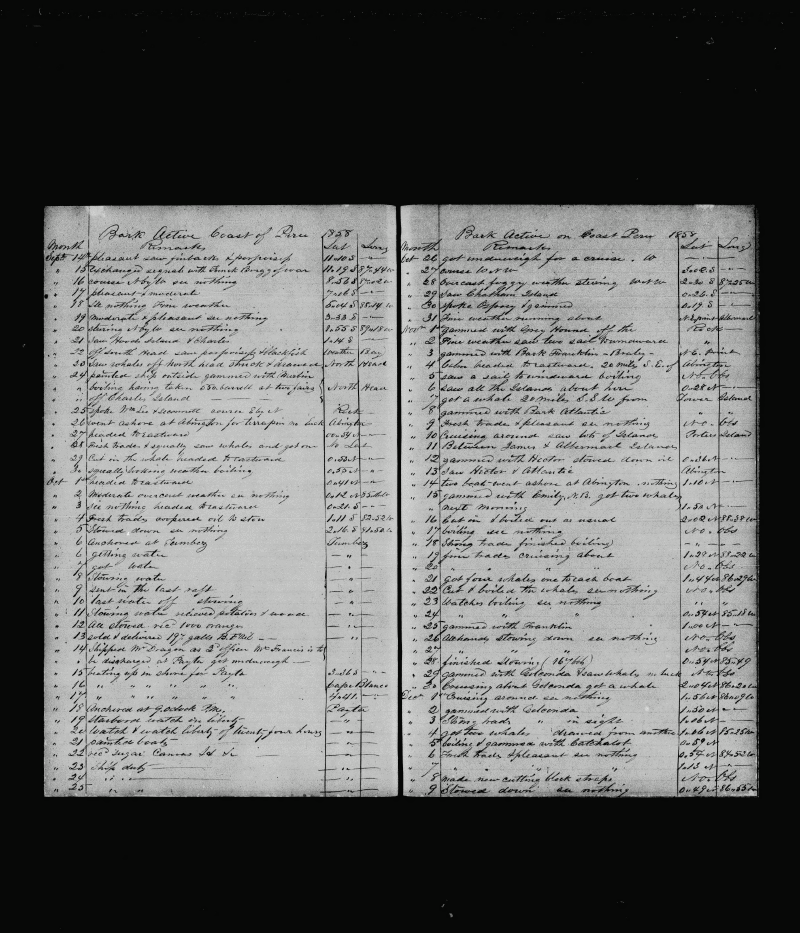 Bark Active Coast of Peru 1858
Month Remarks Lat Long
Sept 14th pleasant saw finback & porpoises 11..10 S
" 15 Exchanged signals with of war 11..19 S 87..44 W
" 16 course N by W see nothing 8..56 S
" 17 pleasant & moderate 7..16 S
" 18 See nothing Fine weather
" 19 moderate & pleasant see nothing 2..33 S
" 20 steering N by W see nothing 1..55 S 89..18 W
" 21 Saw Hoods Island & Charles 1..14 S
" 22 off South Head saw porpoises & Blackfish Bay
" 23 Saw whales off North head struck & drawed North Head
" 24 painted ship outside gammed with
" boiling having taken barrels at two fairs North Head
" off Charles Island
" 25 spoke Wm Lee course E by N Rock
" 26 went ashore at Abington for terrapin no luck Abington
" 27 headed to eastward 00..34 N
" 28 Fresh trades & squally saw whales and got one No Lat
" 29 Cut in the whale headed to eastward 0..52 N
" 30 squally looking weather boiling 0..55 N
Oct 1st headed to eastward 0..41 N
" 2 Moderate overcast weather see nothing 0..12 N
" 3 See nothing headed to eastward 0..21 S
" 4 Fresh trades coopered oil to stow 1..11 S 82..52 W
" 5 Stowed down see nothing 2..16 S 81..50 W
" 6 Anchored at Tumbez Tumbez
" 6 getting water "
" 7 got water "
" 8 Stowing water "
" 9 sent in the last raft "
" 10 last water off stowing "
" 11 Stowing water recieved potatoes & wood "
" 12 All stowed recd 1000 oranges "
" 13 sold & delivered 197 galls B. Fish "
" 14 Shipped Mr Dragon as 2d officer Mr Francis is to
" be discharged at Payta got underweigh
" 15 beating up in shore for Payta 3..36 S
" 16 " " " " " " Cape Blanco
" 17 " " " " " " 4..41
" 18 Anchored at 9 oclock P.M. Payta
" 19 Starboard watch on liberty "
" 20 Watch & watch liberty of twenty four hours "
" 21 painted boats "
" 22 recd Sugar Canvas "
" 23 Ship duty "
" 24 " " "
" 25 " " "
Bark Active on Coast Peru 1858
Month Remarks Lat Long
Oct 26 got underweigh for a cruise . W
" 27 course W N W 3..02 S
" 28 Overcast foggy weather steering W N W 2..30 S 87..25 W
" 29 Saw Chatham Island 0..26 S
" 30 spoke Osprey & gammed 0..19 S
" 31 Fine weather running along N.E. point Albermarl
Nov 1st gammed with Grey Hound off the Rock
" 2 Fine weather saw two sail "
" 3 gammed with Bark Franklin N.E. Point
" 4 Calm headed to eastward, 20 miles S.E. of Abington
" 5 saw a sail to windward boiling No Obs
" 6 saw all the Islands about here 0..28 N
" 7 got a whale 20 miles S.S.W. from Tower Island
" 8 gammed with Bark Atlantic " "
" 9 Fresh trades & pleasant see nothing No Obs
" 10 Cruising around saw lots of Islands Porters Island
" 11 Between James & Albermarl Islands
" 12 gammed with Hector stowed down oil 0..26 N
" 13 Saw Hector & Atlantic Abington
" 14 two boats went ashore at Abington nothing 1..10 N
" 15 gammed with Emily N.B. got two whales
" next morning 1..50 N
" 16 Cut in & boiled out as usual 2..02 N 88..38 W
" 17 boiling see nothing No Obs
" 18 Strong trades finished boiling "
" 19 fine trades cruising about 1..29 N 88..22 W
" 20 " " " No Obs
" 21 got four whales one to each boat 1..44 N 86..29 W
" 22 Cut & boiled the whales see nothing No Obs
" 23 Watches boiling see nothing " "
" 24 " " " " 0..54 N 85..18 W
" 25 gammed with Franklin 1..00 N
" 26 Allhands stowing down see nothing No Obs
" 27 " " No Obs
" 28 finished stowing 0..54 N 85..49
" 29 gammed with Golconda & saw whales no luck No Obs
" 30 Cruising about Golconda got a whale 2..04 N 86..20 W
Dec 1st Cruising around see nothing 1..56 N
" 2 gammed with Golconda 1..50 N
" 3 Strong trades " in sight 1..06 N
" 4 got two whales drawed from another 1..06 N 85..25 W
" 5 boiling & gammed with Catchalot 0..59 N
" 6 Fresh trades & pleasant see nothing 0..57 N 84..52 W
" 7 " " " 1..13 N
" 8 made new cutting block straps No Obs
" 9 Stowed down see nothing 0..49 N 86..55 W